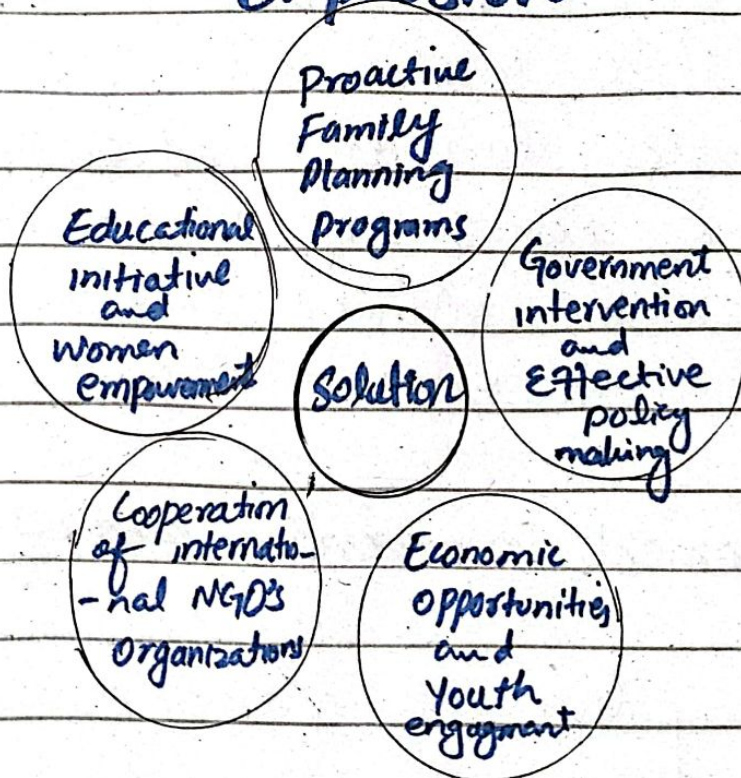 Proactive
Family
Planning
Programs
Educational
initiative
and
Women
empowerment
Government
intervention
and
Effective
policy
making
Solution
Cooperation
of internatio-
-nal NGO's
Organizations
Economic
Opportunities
and
Youth
engagment